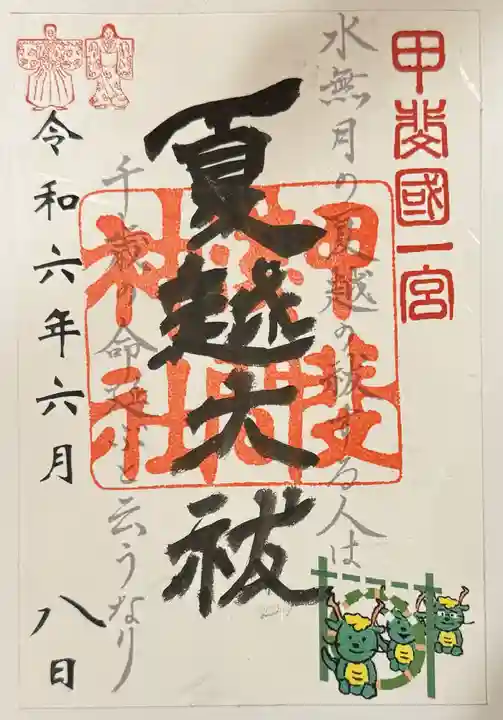 甲斐國一宮
水無月の夏越の祓する人は
夏越大祓
千歳の命延ぶと云うなり
令和六年六月 八日
甲斐
神社